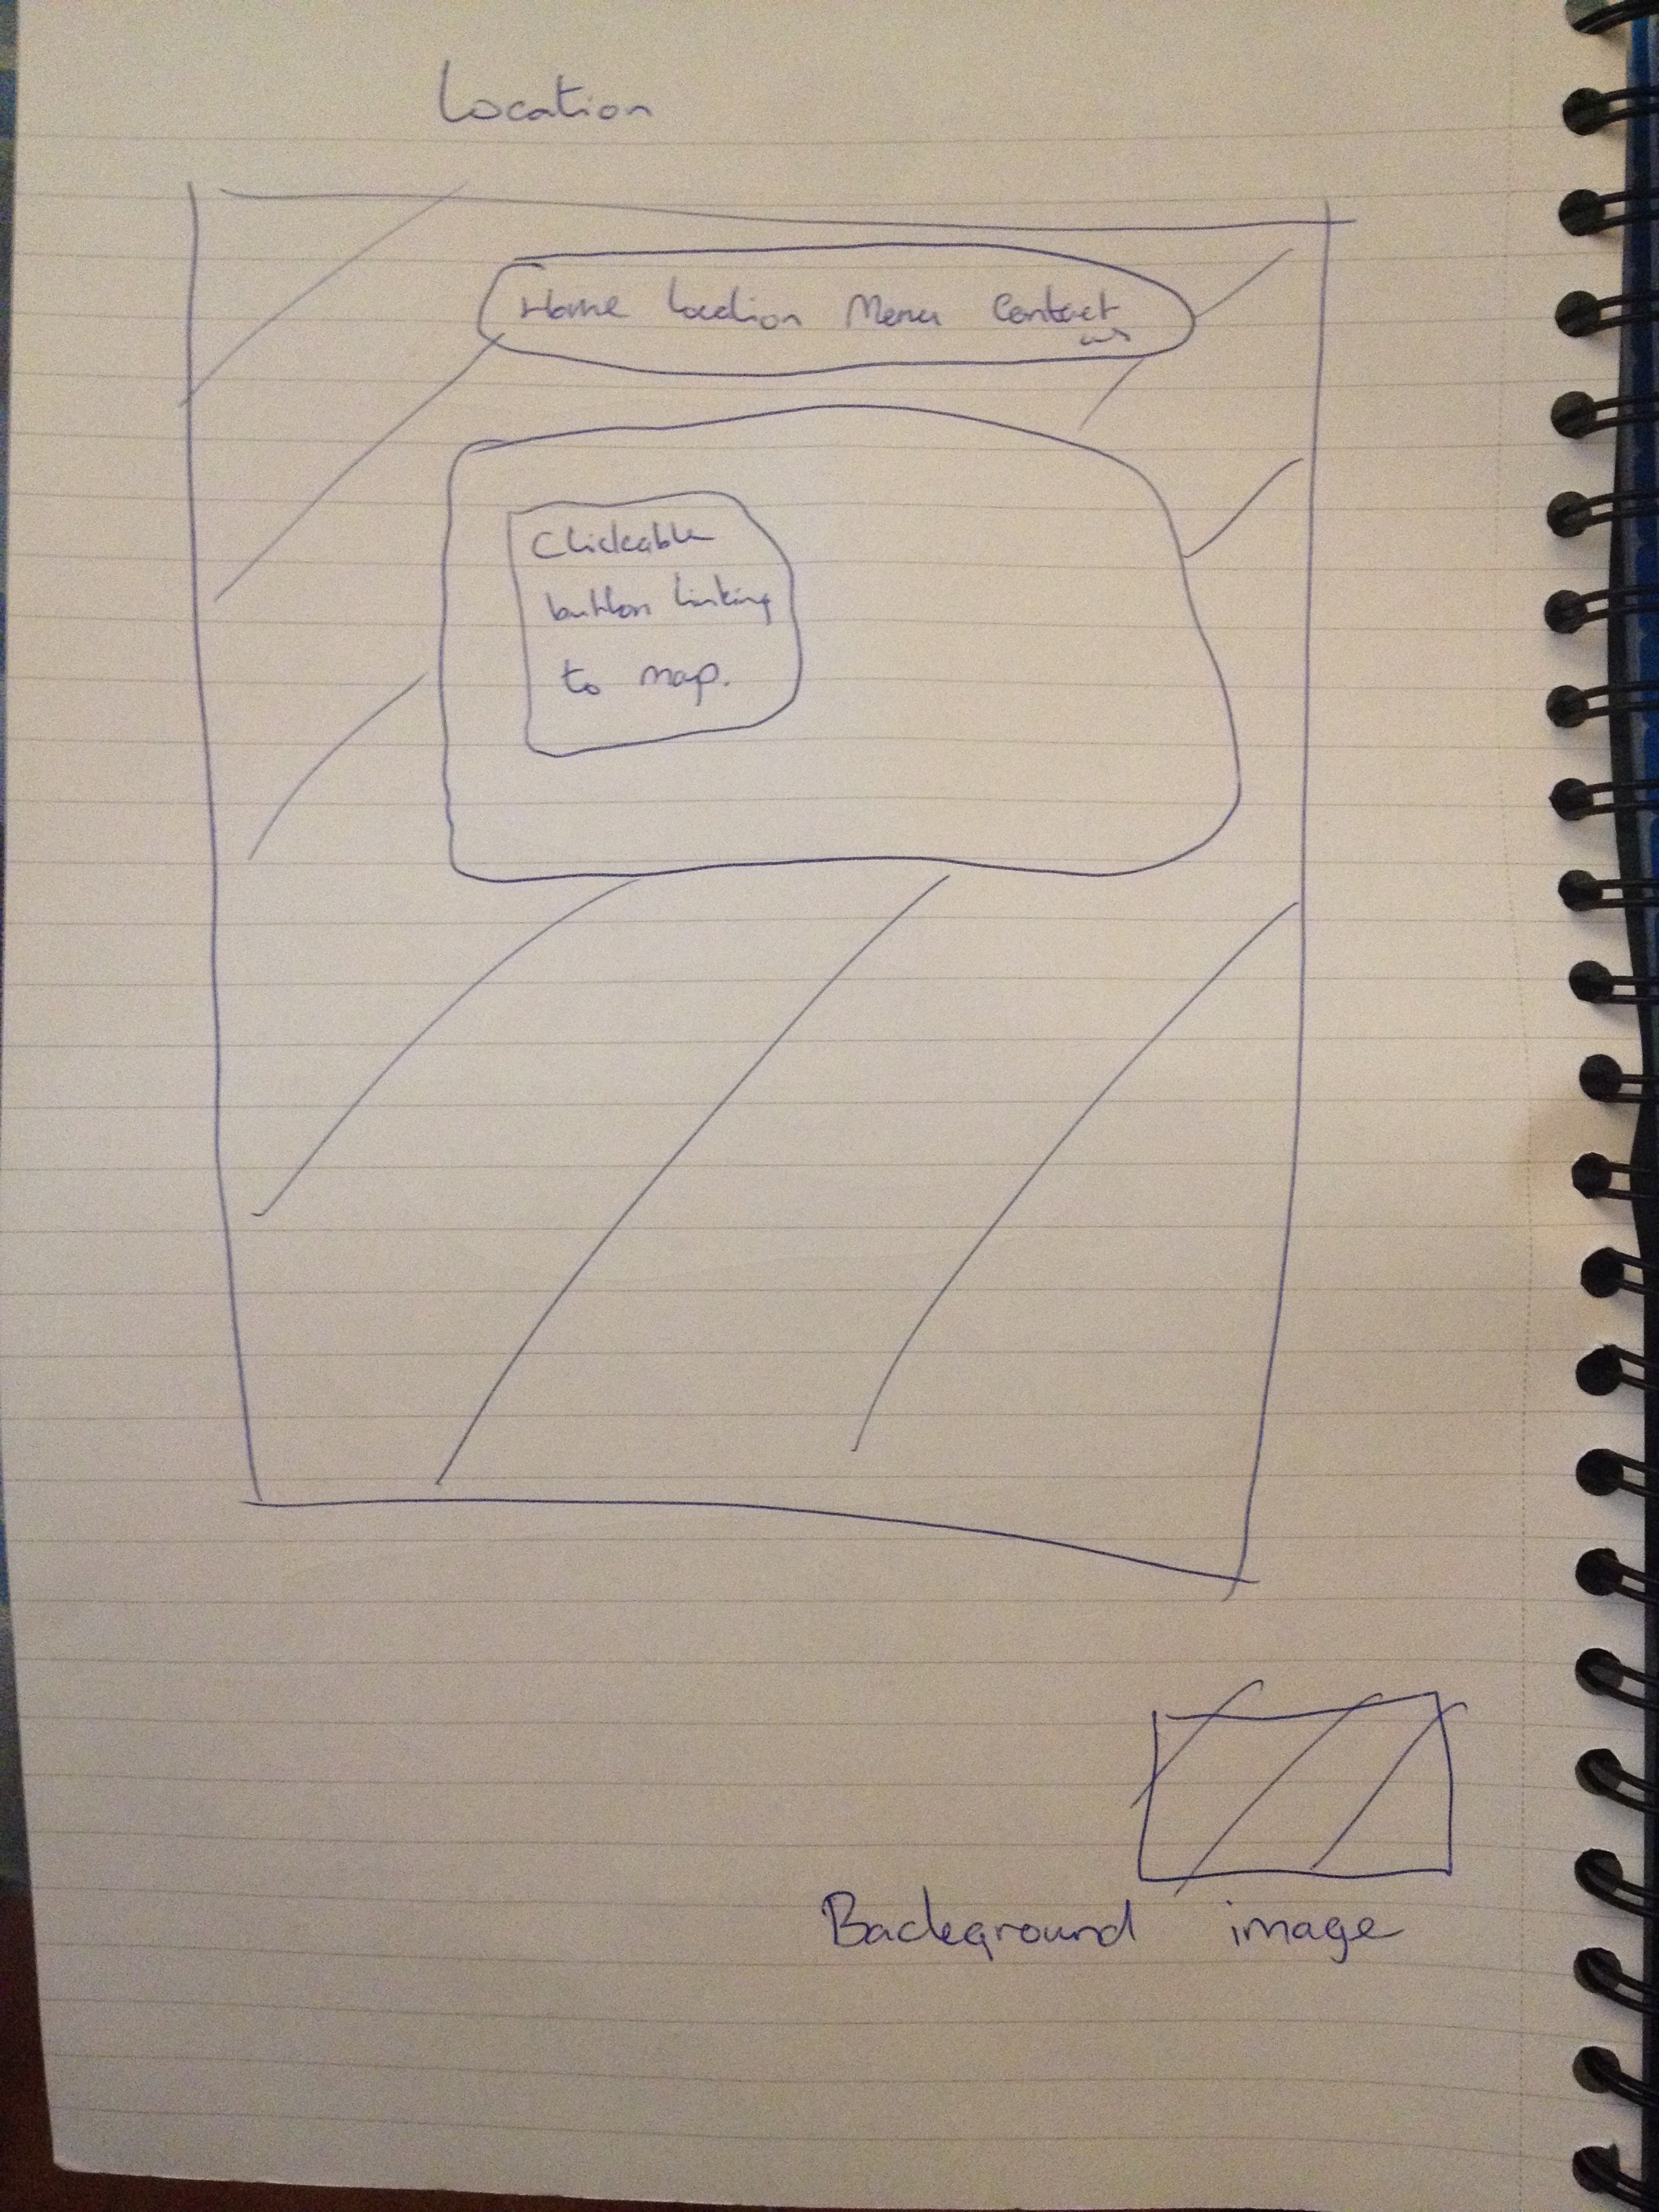 Location
Home Location Menu Contact
us
Clickable
button linking
to map.
Background image